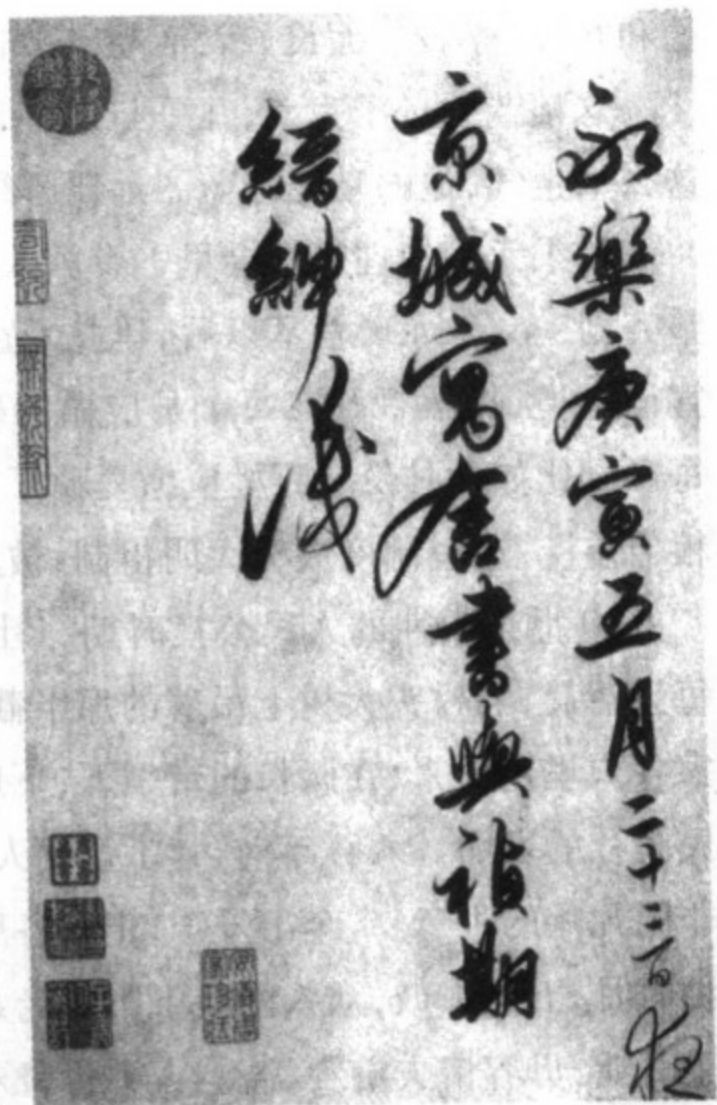 永樂庚寅五月二十二日在
京城寓舍書與禎期
縉紳識
乾隆鑑賞